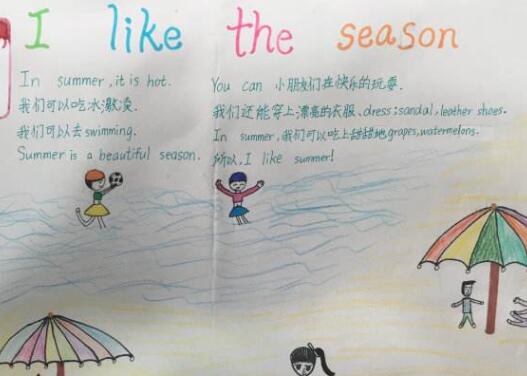 I like the season
In summer, it is hot.
我们可以吃冰激凌.
我们可以去swimming.
Summer is a beautiful season.
You can 小朋友们在快乐的玩耍.
我们还能穿上漂亮的衣服、dress; sandal, leather shoes.
In summer,我们可以吃上甜甜地grapes,watermelons.
所以,I like summer!